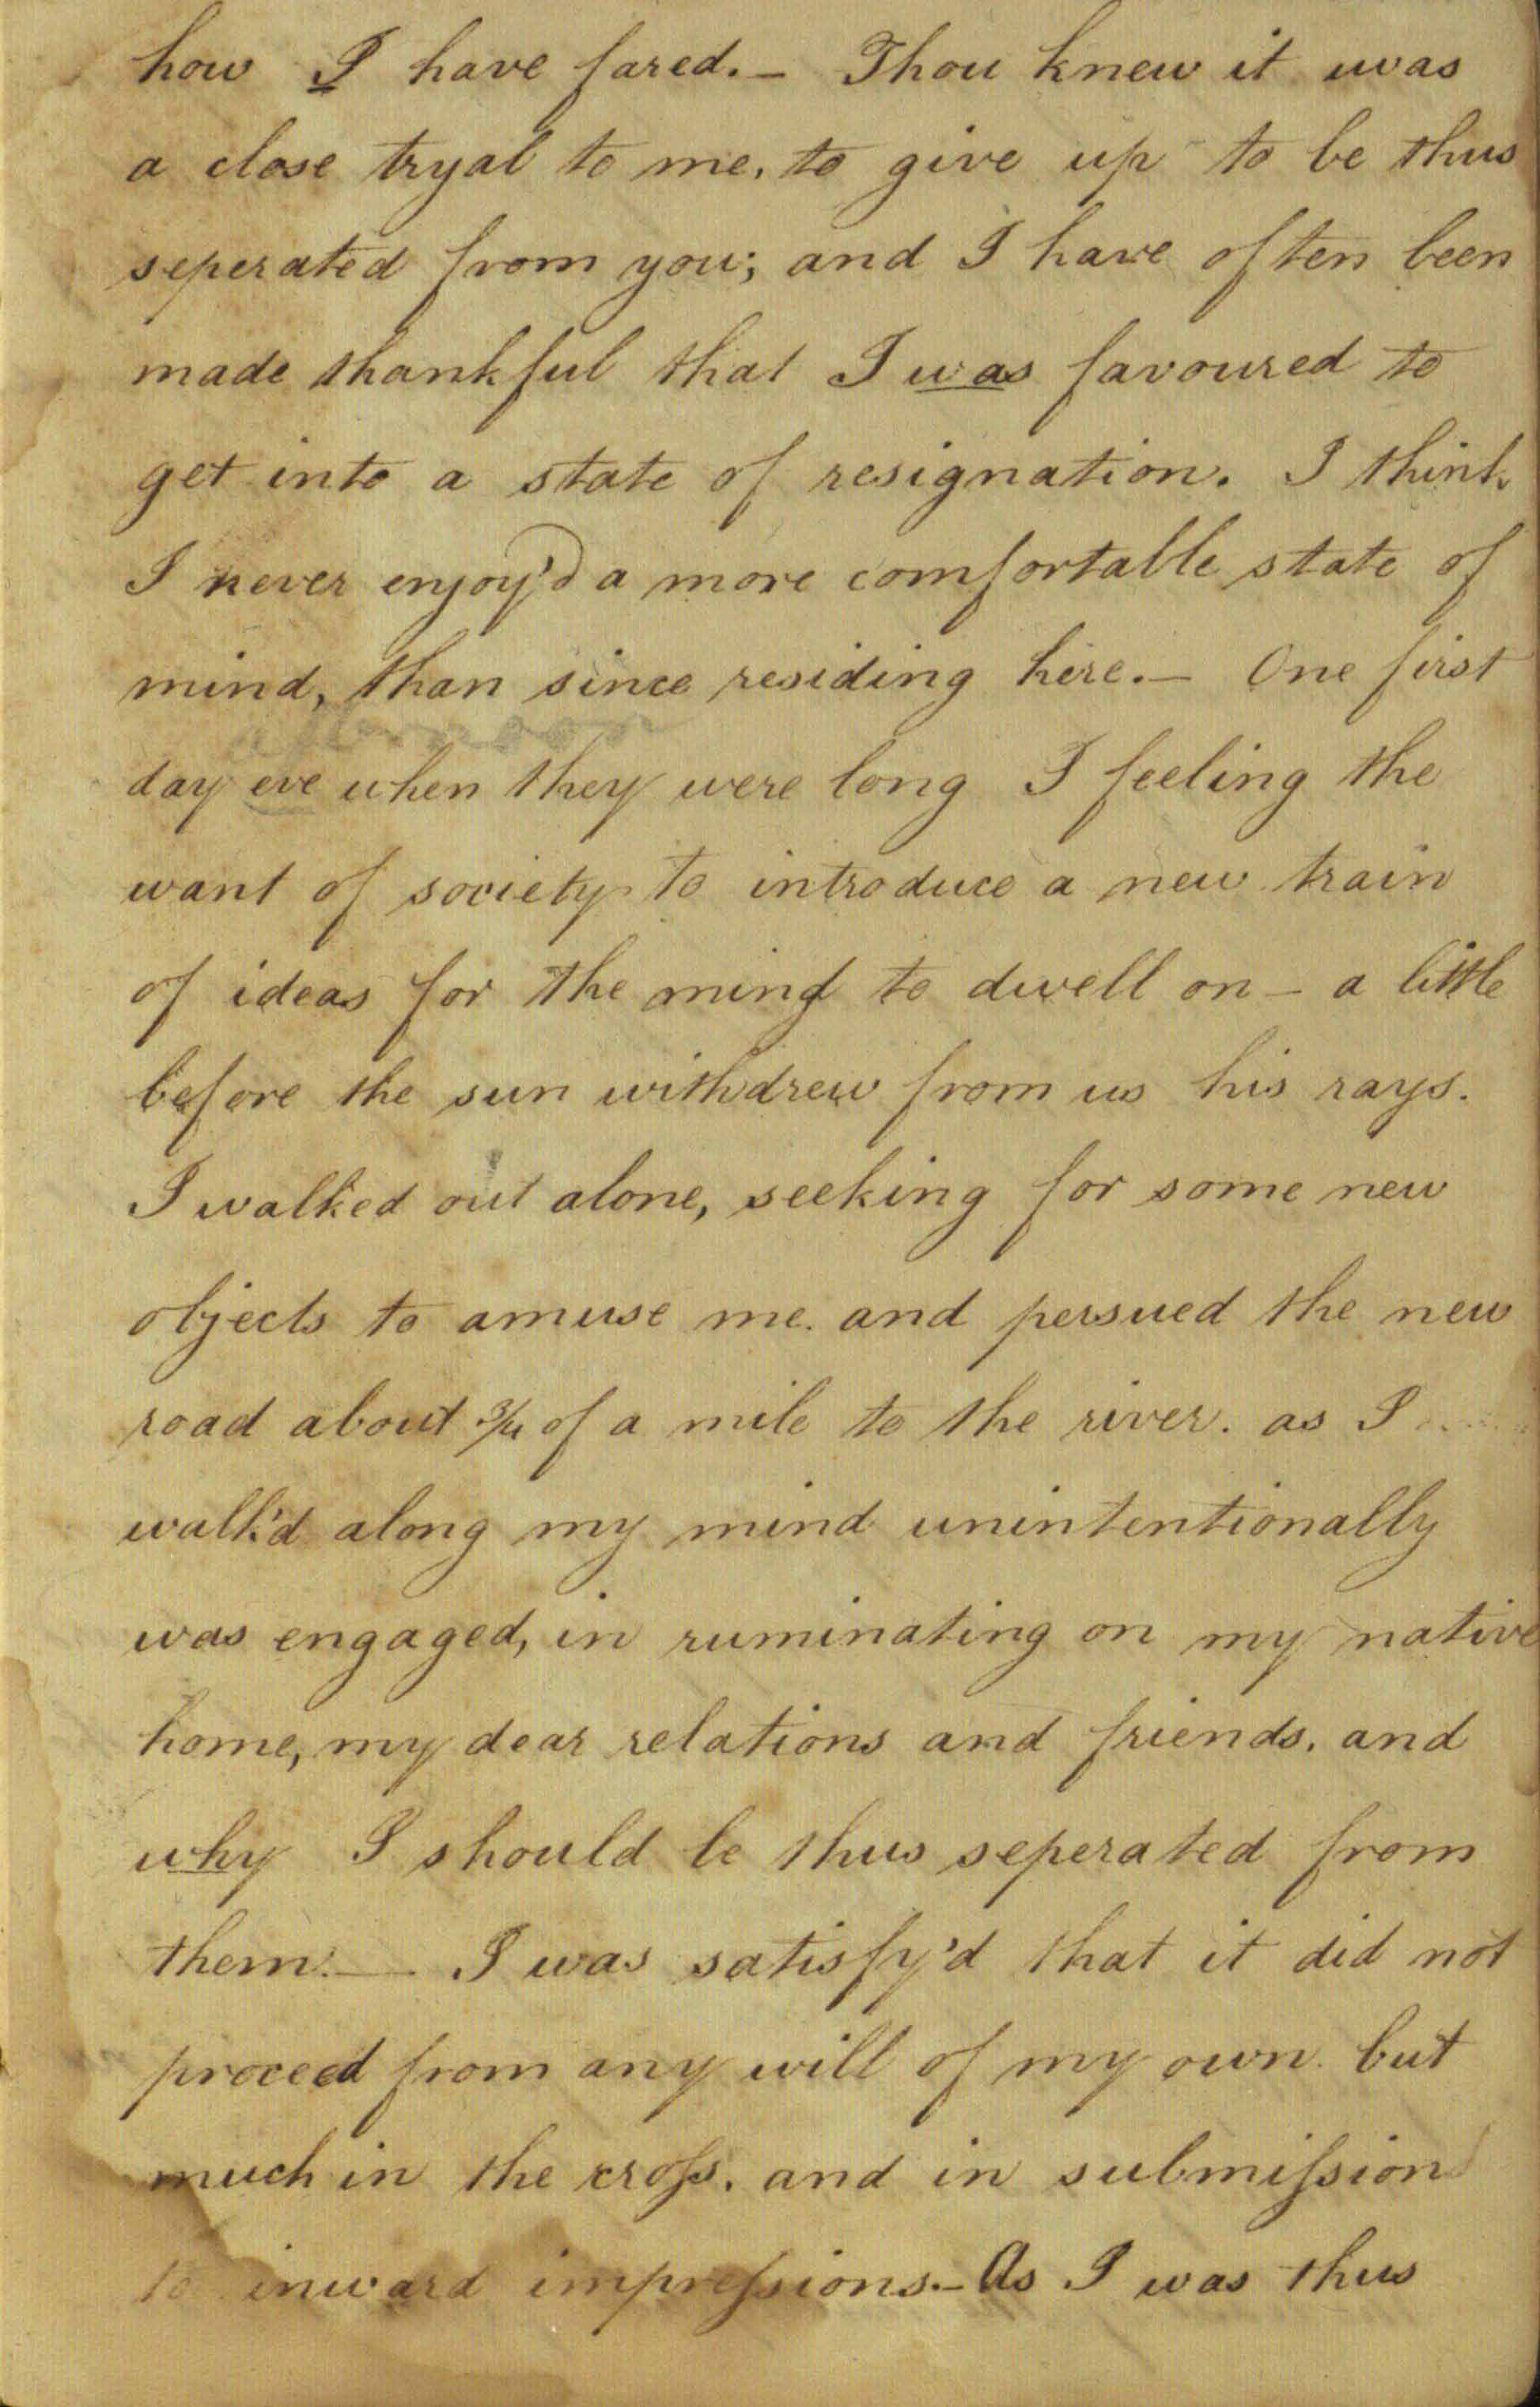 how I have fared.— Thou knew it was
a close tryal to me, to give up to be thus
seperated from you; and I have often been
made thankful that I was favoured to
get into a state of resignation. I think
I never enjoy'd a more comfortable state of
mind, than since residing here.— One first
afternoon
day eve when they were long I feeling the
want of society to introduce a new train
of ideas for the mind to dwell on — a little
before the sun withdrew from us his rays.
I walked out alone, seeking for some new
objects to amuse me. and persued the new
road about 3/4 of a mile to the river. as I
walk'd along my mind unintentionally
was engaged, in ruminating on my native
home, my dear relations and friends. and
why I should be thus seperated from
them.— I was satisfy'd that it did not
proceed from any will of my own. but
much in the croſs. and in submiſsion
to inward impreſsions.— As I was thus